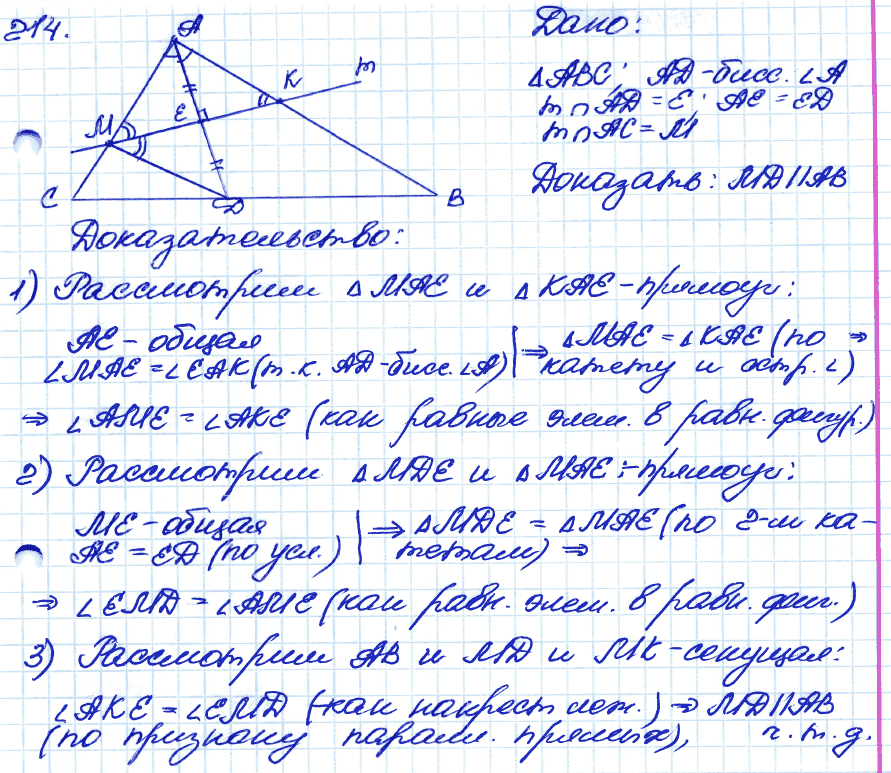 214.
A
K
m
M
E
C
D
B
Дано:
△ABC; AD-бисс. ∠A
m ∩ AD = E; AE = ED
m ∩ AC = M
Доказать: MD || AB
Доказательство:
1) Рассмотрим △MAE и △KAE-прямоуг:
AE - общая
∠MAE = ∠EAK (т.к. AD-бисс. ∠A) | ⇒ △MAE = △KAE (по ⇒
катету и остр. ∠)
⇒ ∠AME = ∠AKE (как равные элем. в равн. фигур.)
2) Рассмотрим △MDE и △MAE:-прямоуг:
ME - общая
AE = ED (по усл.) | ⇒ △MDE = △MAE (по 2-м ка-
тетам) ⇒
⇒ ∠EMD = ∠AME (как равн. элем. в равн. фиг.)
3) Рассмотрим AB и MD и MK-секущая:
∠AKE = ∠EMD (-как накрест леж.) ⇒ MD || AB
(по признаку паралл. прямых), ч.т.д.